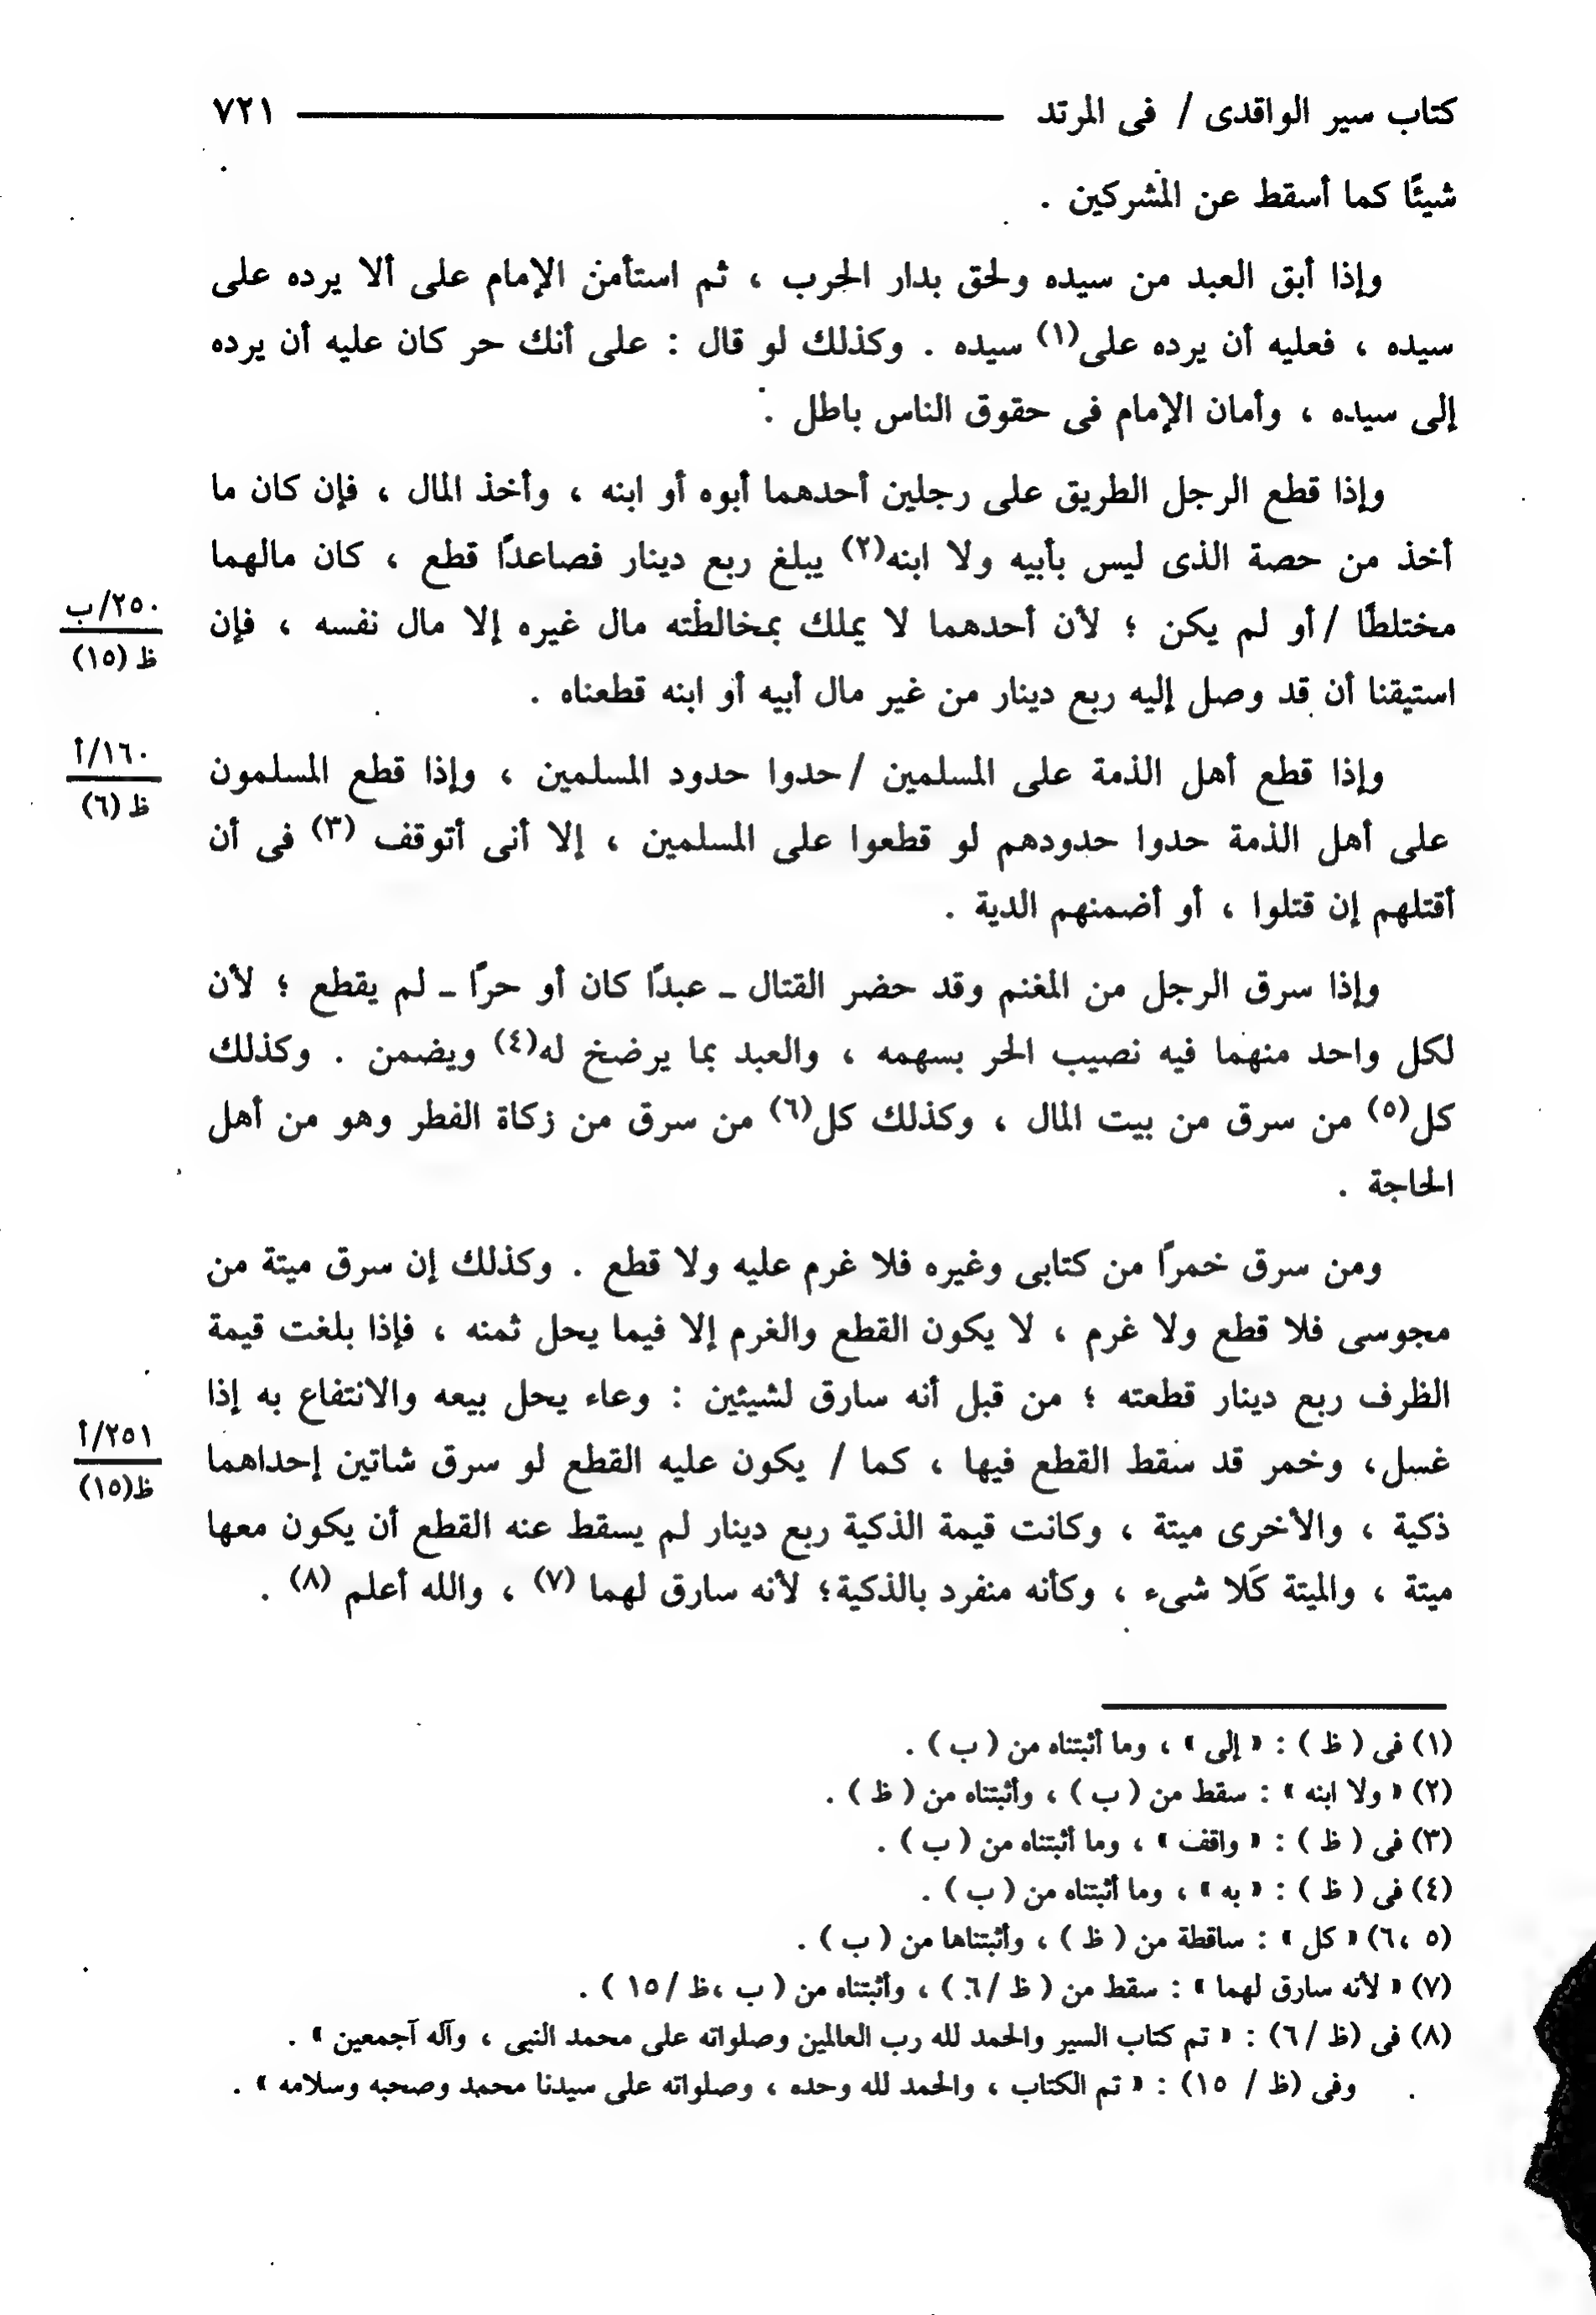 كتاب سير الواقدى / فى المرتد ٧٢١
شيئًا كما أسقط عن المشركين .
وإذا أبق العبد من سيده ولحق بدار الحرب ، ثم استأمن الإمام على ألا يرده على
سيده ، فعليه أن يرده على(١) سيده . وكذلك لو قال : على أنك حر كان عليه أن يرده
إلى سيده ، وأمان الإمام فى حقوق الناس باطل .
وإذا قطع الرجل الطريق على رجلين أحدهما أبوه أو ابنه ، وأخذ المال ، فإن كان ما
أخذ من حصة الذى ليس بأبيه ولا ابنه(٢) يبلغ ربع دينار فصاعدًا قطع ، كان مالهما
مختلطًا / أو لم يكن ؛ لأن أحدهما لا يملك بمخالطته مال غيره إلا مال نفسه ، فإن
٢٥٠/ب
ظ (١٥)
استيقنا أن قد وصل إليه ربع دينار من غير مال أبيه أو ابنه قطعناه .
وإذا قطع أهل الذمة على المسلمين / حدوا حدود المسلمين ، وإذا قطع المسلمون
١٦٠/أ
ظ (٦)
على أهل الذمة حدوا حدودهم لو قطعوا على المسلمين ، إلا أنى أتوقف (٣) فى أن
أقتلهم إن قتلوا ، أو أضمنهم الدية .
وإذا سرق الرجل من المغنم وقد حضر القتال ـ عبدًا كان أو حرًا ـ لم يقطع ؛ لأن
لكل واحد منهما فيه نصيب الحر بسهمه ، والعبد بما يرضخ له(٤) ويضمن . وكذلك
كل(٥) من سرق من بيت المال ، وكذلك كل(٦) من سرق من زكاة الفطر وهو من أهل
الحاجة .
ومن سرق خمرًا من كتابى وغيره فلا غرم عليه ولا قطع . وكذلك إن سرق ميتة من
مجوسى فلا قطع ولا غرم ، لا يكون القطع والغرم إلا فيما يحل ثمنه ، فإذا بلغت قيمة
الظرف ربع دينار قطعته ؛ من قبل أنه سارق لشيئين : وعاء يحل بيعه والانتفاع به إذا
غسل، وخمر قد سقط القطع فيها ، كما / يكون عليه القطع لو سرق شاتين إحداهما
٢٥١/أ
ظ(١٥)
ذكية ، والأخرى ميتة ، وكانت قيمة الذكية ربع دينار لم يسقط عنه القطع أن يكون معها
ميتة ، والميتة كَلا شىء ، وكأنه منفرد بالذكية؛ لأنه سارق لهما (٧) ، والله أعلم (٨) .
(١) فى ( ظ ) : « إلى » ، وما أثبتناه من ( ب ) .
(٢) « ولا ابنه » : سقط من ( ب ) ، وأثبتناه من ( ظ ) .
(٣) فى ( ظ ) : « واقف » ، وما أثبتناه من ( ب ) .
(٤) فى ( ظ ) : « به » ، وما أثبتناه من ( ب ) .
(٥ ،٦) « كل » : ساقطة من ( ظ ) ، وأثبتناها من ( ب ) .
(٧) « لأنه سارق لهما » : سقط من ( ظ /٦ ) ، وأثبتناه من ( ب ،ظ /١٥ ) .
(٨) فى (ظ /٦) : « تم كتاب السير والحمد لله رب العالمين وصلواته على محمد النبى ، وآله آجمعين » .
وفى (ظ / ١٥) : « تم الكتاب ، والحمد لله وحده ، وصلواته على سيدنا محمد وصحبه وسلامه » .